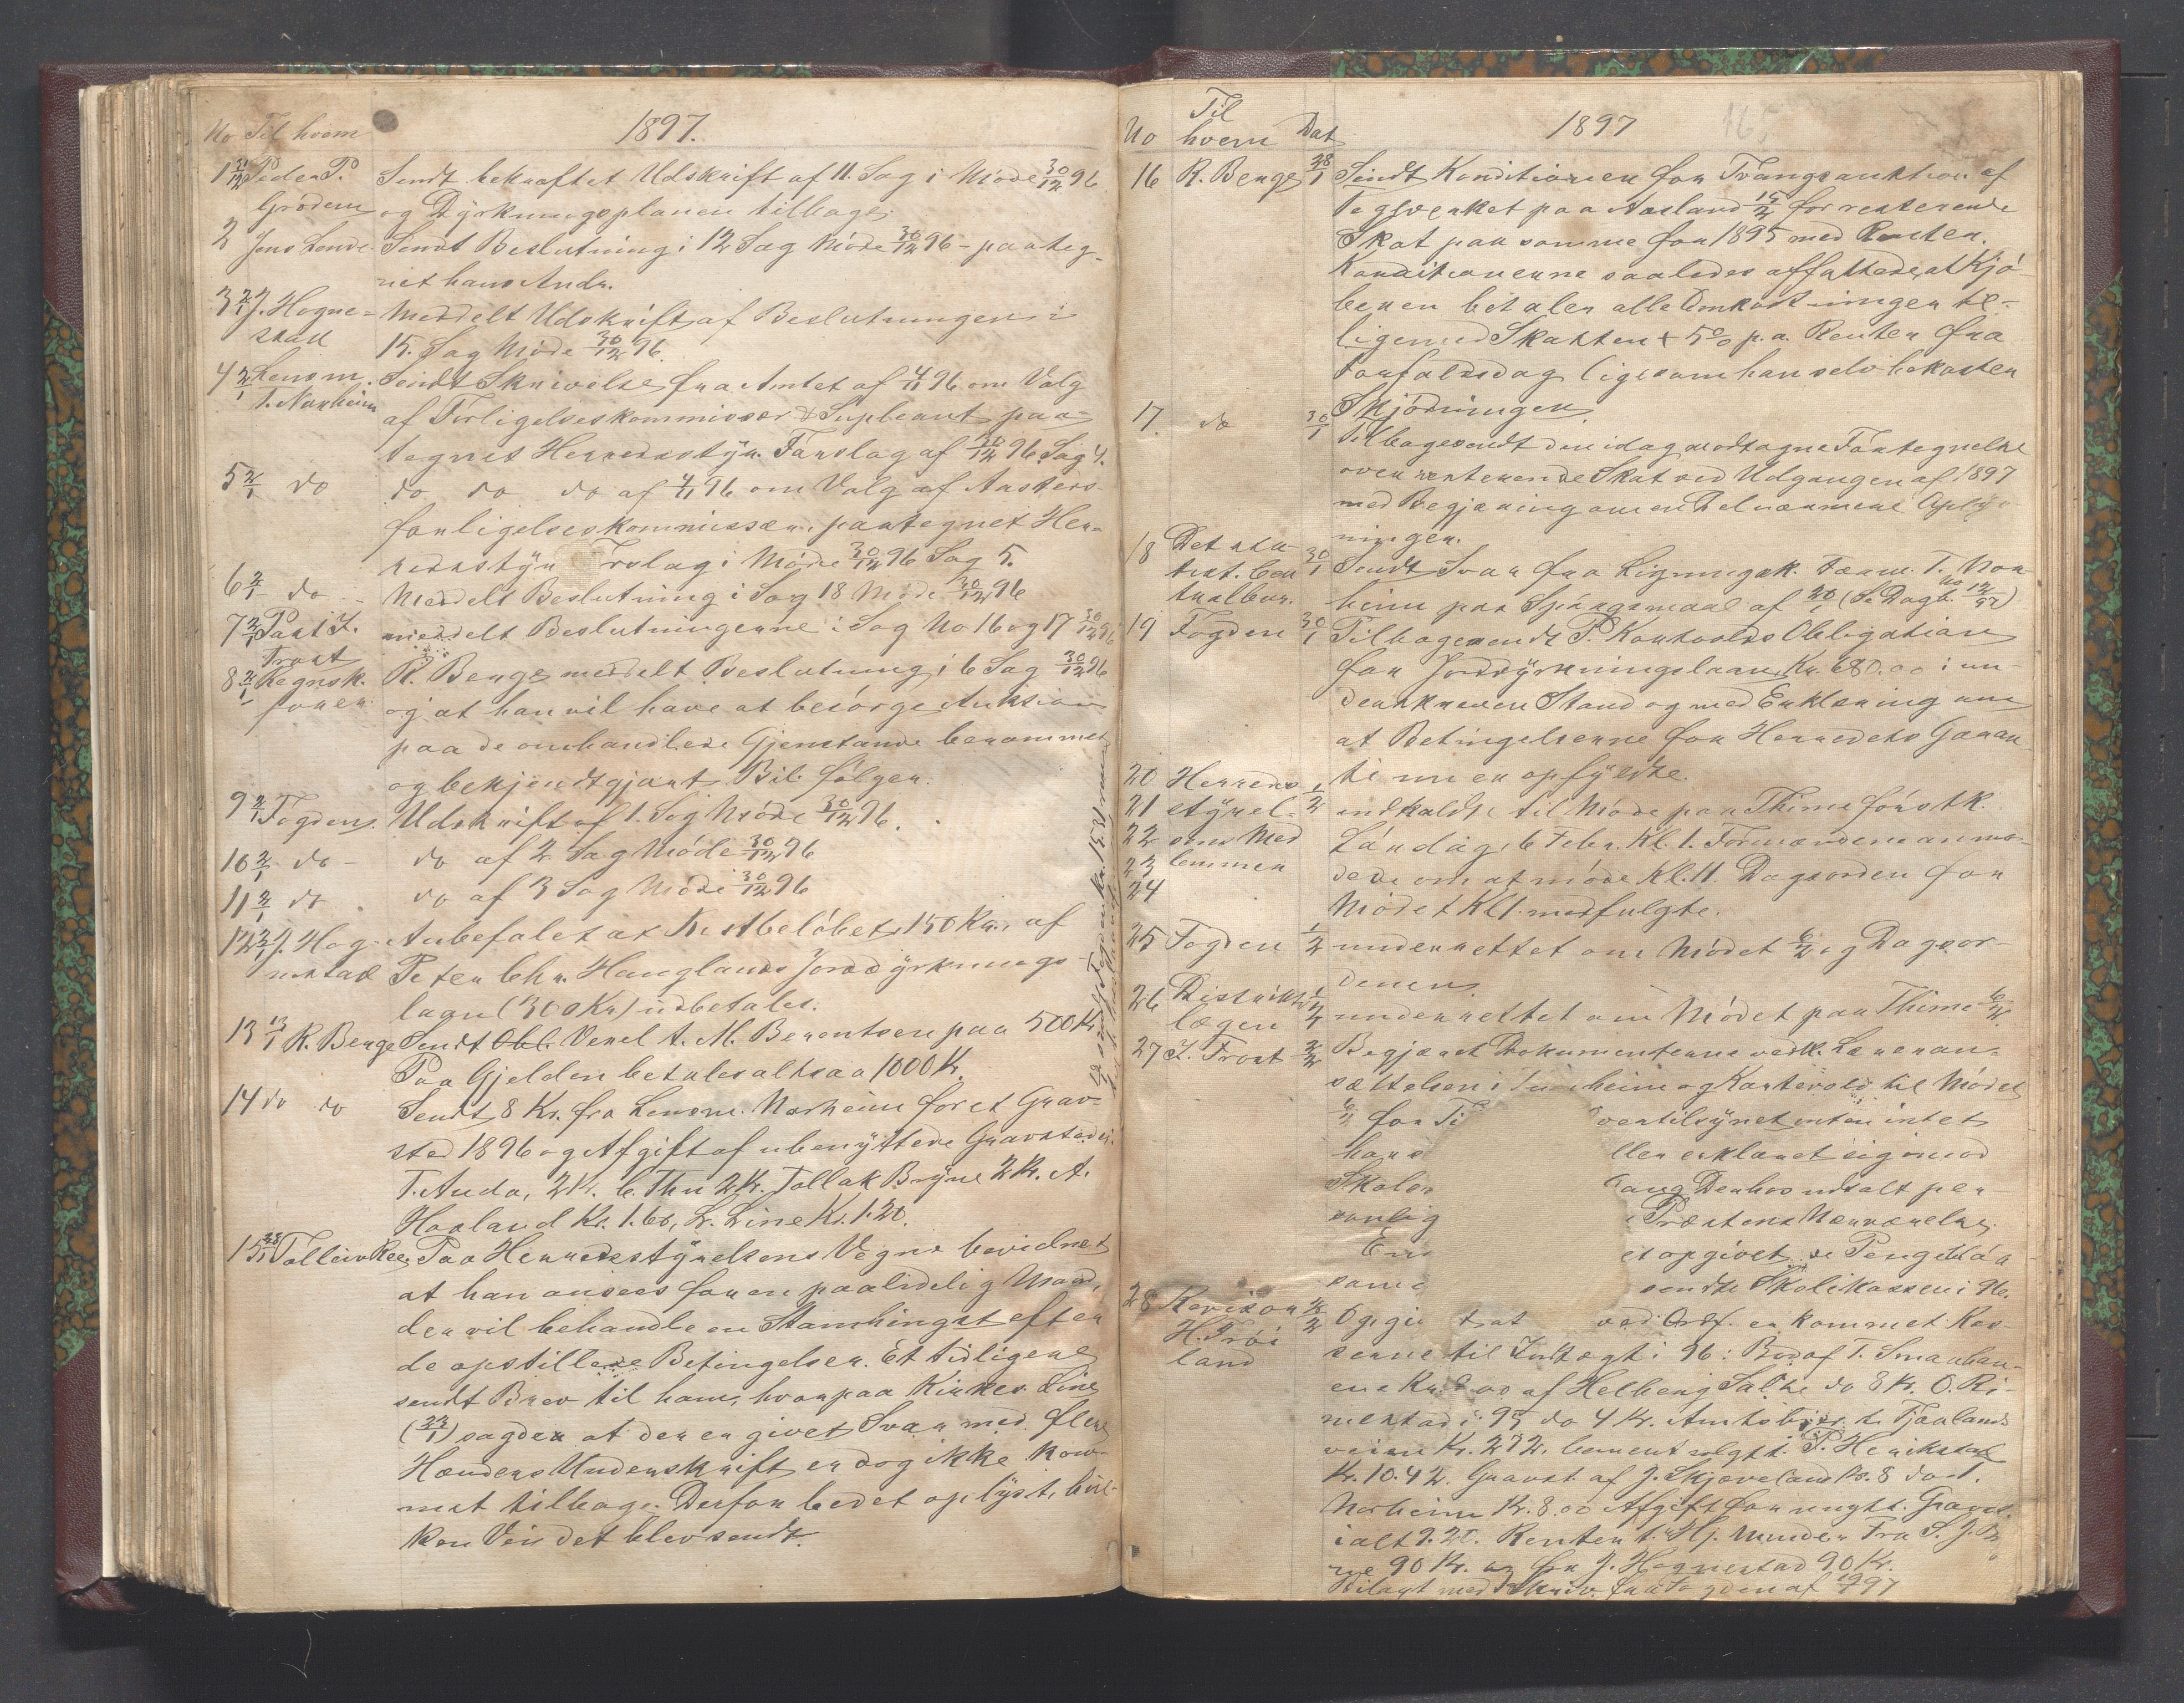 No Til hvem 1897.
1 31/12 Peder P. Sendt bekræftet Udskrift af 11. Sag i Møde 30/12 96
Grødem og Dyrkningsplanen tilbage.
2 Jens Lende Sendt Beslutning i 12 Sag Møde 30/12 96 - paateg-
net hans Andr.
3 2/1 J. Hogne- Meddelt Udskrift af Beslutningen i
stad 15. Sag Møde 30/12 96.
4 2/1 Lensm. Sendt Skrivelse fra Amtet af 4/11 96 om Valg
T. Norheim af Forligelseskommissær & Supleant paa-
tegnet Herredsstyr. Forslag af 30/12 96 Sag 4.
5 2/1 do do do do af 4/11 96 om Valg af
forligelseskommissær, paategnet Her-
redsstyr Forslag i Møde 30/12 96 Sag 5.
6 2/1 do - Meddelt Beslutning i Sag 18 Møde 30/12 96
7 2/1 meddelt Beslutningerne i Sag No 16 og 17 30/12 96
Trost
8 2/1 Regnsk. R. Benge meddelt Beslutning i 6 Sag 30/12 96
føreren og at han vil have at besørge Auktion
paa de omhandlede Gjenstande berammet
og bekjendtgjort. Bil. følger.
9 2/1 Fogden. Udskrift af 1. Sag Møde 30/12 96.
10 2/1 do - do af 2 Sag Møde 30/12 96
11 2/1 do do af 3 Sag Møde 30/12 96
12 2/1 J. Hog- Anbefalet at Restbeløbet, 150 Kr., af
nestad Peter Chr. Hauglands Jorddyrknings-
laan (300 Kr) udbetales.
13 13/1 R. Benge Sendt Obl. Vexel A. M. Berentsen paa 500 Kr
Paa Gjelden betales altsaa 1000 Kr.
14 do do Sendt 8 Kr. fra Lensm. Norheim for et Grav-
sted 1896 og Afgift af ubenyttede Gravsteder.
T. Auda, 2 Kr. C. Thu 2 Kr. Tollak Bryne 2 Kr. A.
Haaland Kr. 1.60, L. Line Kr. 1.20.
15 28/1 Tolleiv Paa Herredsstyrelsens Vegne bevidnet
at han ansees for en paalidelig Mand,
der vil behandle en Stamhingst efter
de opstillede Betingelser. Et tidligere
sendt Brev til ham, hvorpaa Kirkes. Line
sagder at der er givet Svar med flere
Hænders Underskrift er dog ikke kom-
met tilbage. Derfor bedet oplyst, hvil-
ken Vei det blev sendt.
Til
No hvem Dat 1897
16 R. Benge 28/1 Sendt Konditionen for Tvangsauktion af
Teglverket paa Aasland 15/2 for resterende
Skat paa samme for 1895 med Renter.
Konditionerne saaledes affattede, at Kjø-
beren betaler alle Omkostninger til-
ligemed Skatten + 5% p.a. Renter fra
Forfaldsdag ligesom han selv bekoster
Skjødningen.
17. do 30/1 Tilbagesendt den idag modtagne Fortegnelse
over resterende Skat ved Udgangen af 1897
med Begjæring om en Del nærmere Oplys-
ninger.
18 Det sta- 30/1 Sendt Svar fra Ligningsk. Form. T. Nor-
tist. Cen heim paa Spørgsmaal af 20/1 (Se Dagb. No 12/97)
tralbur.
19 Fogden 30/1 Tilbagesendt P. Kartvolds Obligation
for Jorddyrkningslaan, Kr. 680.00 i un-
derskreven Stand og med Erklæring om
at Betingelserne for Herredets Garan-
ti nu er opfyldte.
20 Herreds-
21 styrel- 1/2 indkaldt til Møde paa Thime førstk.
22 sens Med Lørdag, 6 Febr. Kl. 1. Formændene anmo-
23 lemmer dede om at møde Kl. 11. Dagsorden for
24 Mødet Kl 1. medfulgte.
25 Fogden 1/2 underrettet om Mødet 6/2 og Dagsor-
denen.
26 Distrikts 1/2 underrettet om Mødet paa Thime 6/2.
lægen
27 T. Trost 2/2 Begjæret Dokumenterne vedk. Læreran-
sættelsen i heim og Kartevold til Mødet
6/2 for Ti vertilsynet enten intet
hans ller erklæret sig imod
Skolen Denhos udtalt per-
sonlig Præstens Nærværelse.
En et opgivet de Penge
same sendte Skolekassen i 96.
28 Revisor 2/2 Opgi t at ved Ordf. er kommet Kas-
H. Frøi serne til Indtægt i 96: Bod af T. Smaahan-
land ene Kr. af Helberg Salte do 8 Kr. O. Ri-
mestad i 95 do 4 Kr. Amtsbidr. t. Fjælands
veien Kr. 272. Cement solgt t. P. Herikstad
Kr. 10.42. Gravst. af J. Skjæveland Kr. 8 do T.
Norheim Kr. 8.00 Afgift for Gravst.
ialt 9.20. Renter Fra S. J. Br
ne 90 Kr. og fra J. Hognestad 90 Kr.
Bilagt med Skriv. fra Fogden af